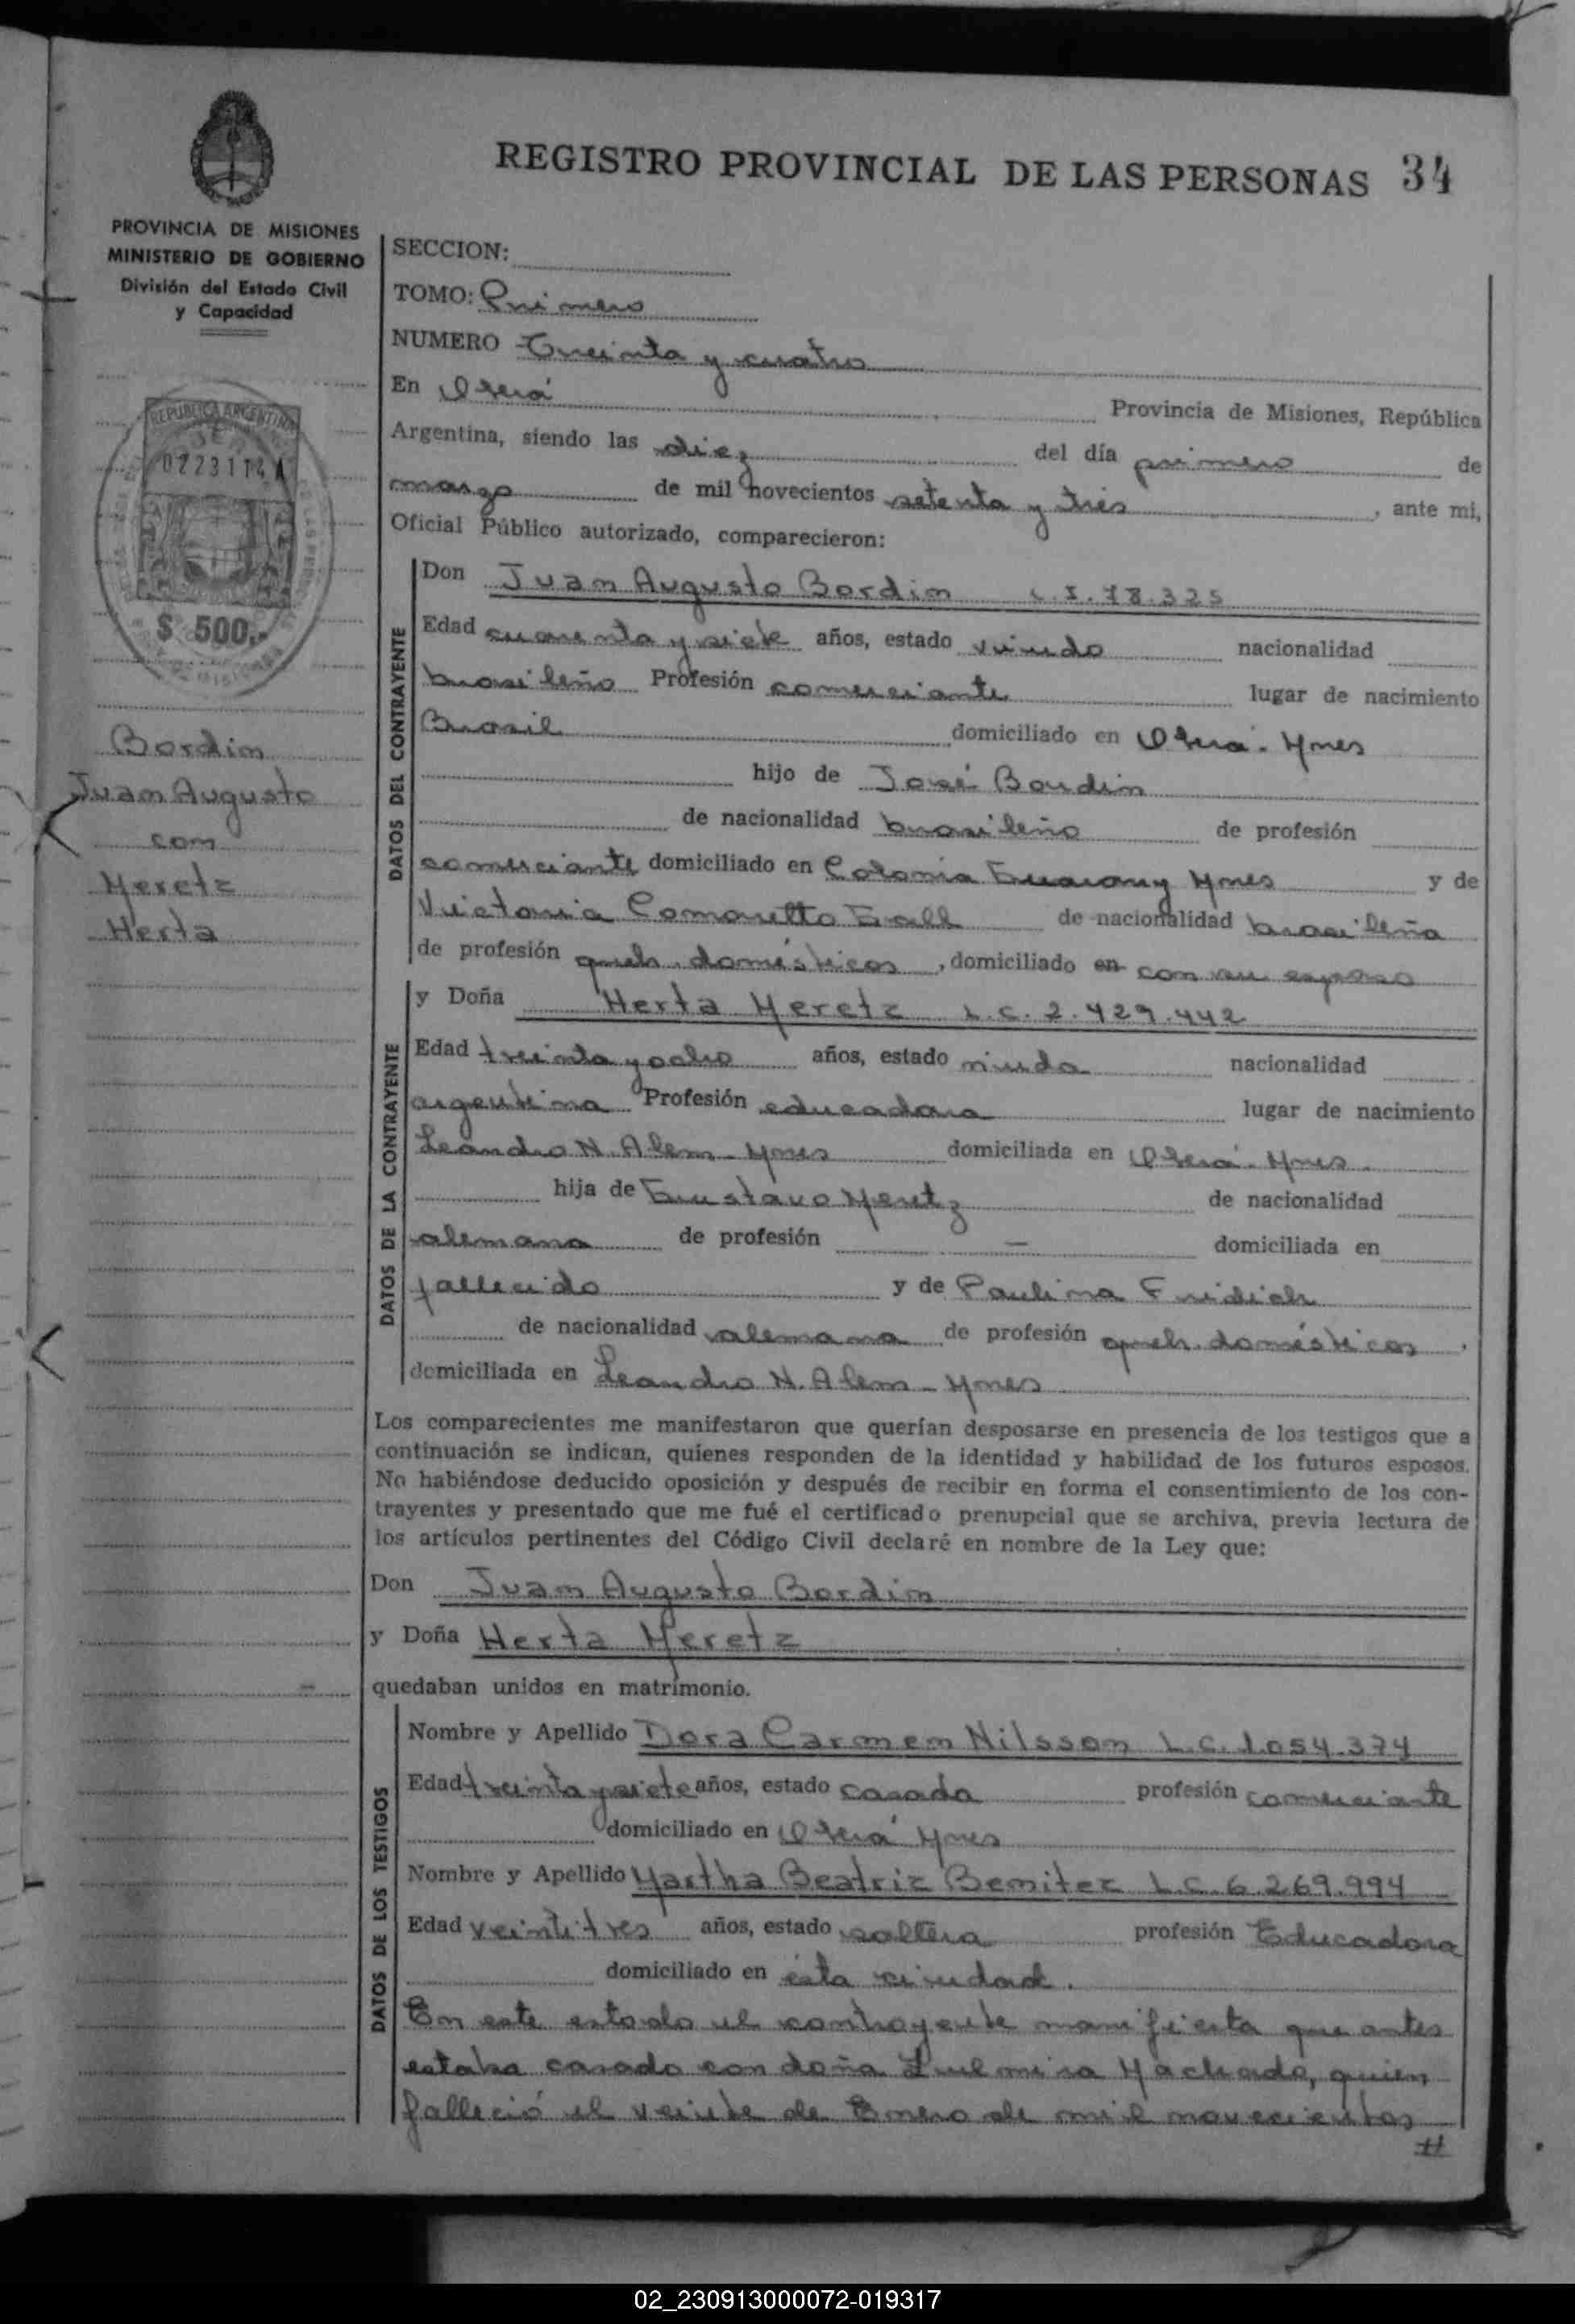 REGISTRO PROVINCIAL DE LAS PERSONAS 34
PROVINCIA DE MISIONES
MINISTERIO DE GOBIERNO
División del Estado Civil
y Capacidad
REPUBLICA ARGENTINA
$ 500.-
Bordin
Juan Augusto
con
Meretz
Herta
SECCION:
TOMO: Primero
NUMERO Treinta y cuatro
En Oberá Provincia de Misiones, República
Argentina, siendo las diez del día primero de
marzo de mil novecientos setenta y tres, ante mi,
Oficial Público autorizado, comparecieron:
DATOS DEL CONTRAYENTE
Don Juan Augusto Bordin C.I. 78.325
Edad cuarenta y siete años, estado viudo nacionalidad
brasileño Profesión comerciante lugar de nacimiento
Brasil domiciliado en Oberá - Mnes
hijo de José Bordin
de nacionalidad brasileño de profesión
comerciante domiciliado en Colonia Guarany Mnes y de
Victoria Comaretto Gall de nacionalidad brasileña
de profesión queh. domésticos, domiciliado en con su esposo
DATOS DE LA CONTRAYENTE
y Doña Herta Meretz L.C. 2.429.442
Edad treinta y ocho años, estado viuda nacionalidad
argentina Profesión educadora lugar de nacimiento
Leandro N. Alem - Mnes domiciliada en Oberá - Mnes.
hija de Gustavo Meretz de nacionalidad
alemana de profesión — domiciliada en
fallecido y de Paulina Fridich
de nacionalidad alemana de profesión queh. domésticos,
domiciliada en Leandro N. Alem - Mnes
Los comparecientes me manifestaron que querían desposarse en presencia de los testigos que a
continuación se indican, quienes responden de la identidad y habilidad de los futuros esposos.
No habiéndose deducido oposición y después de recibir en forma el consentimiento de los con-
trayentes y presentado que me fué el certificado prenupcial que se archiva, previa lectura de
los artículos pertinentes del Código Civil declaré en nombre de la Ley que:
Don Juan Augusto Bordin
y Doña Herta Meretz
quedaban unidos en matrimonio.
DATOS DE LOS TESTIGOS
Nombre y Apellido Dora Carmen Nilsson L.C. 1.054.374
Edad treinta y siete años, estado casada profesión comerciante
domiciliado en Oberá Mnes
Nombre y Apellido Martha Beatriz Benitez L.C. 6.269.994
Edad veintitres años, estado soltera profesión Educadora
domiciliado en ésta ciudad.
En este estado el contrayente manifiesta que antes
estaba casado con doña Machado, quien
falleció el veinte de Enero de mil novecientos
#
02_230913000072-019317